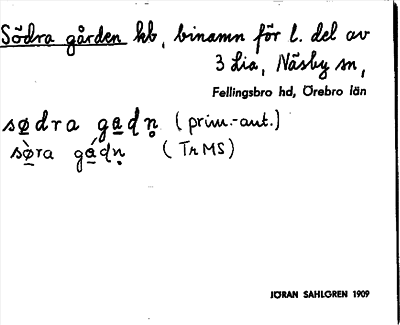 Södra gården hb, binamn för l. del av
3 Lia, Näsby sn,
Fellingsbro hd, Örebro län
sø̲dra ga̲dn̥ (prim.-ant.)
sø̲̀ra gá̲dṇ (Tr MS)
JÖRAN SAHLGREN 1909